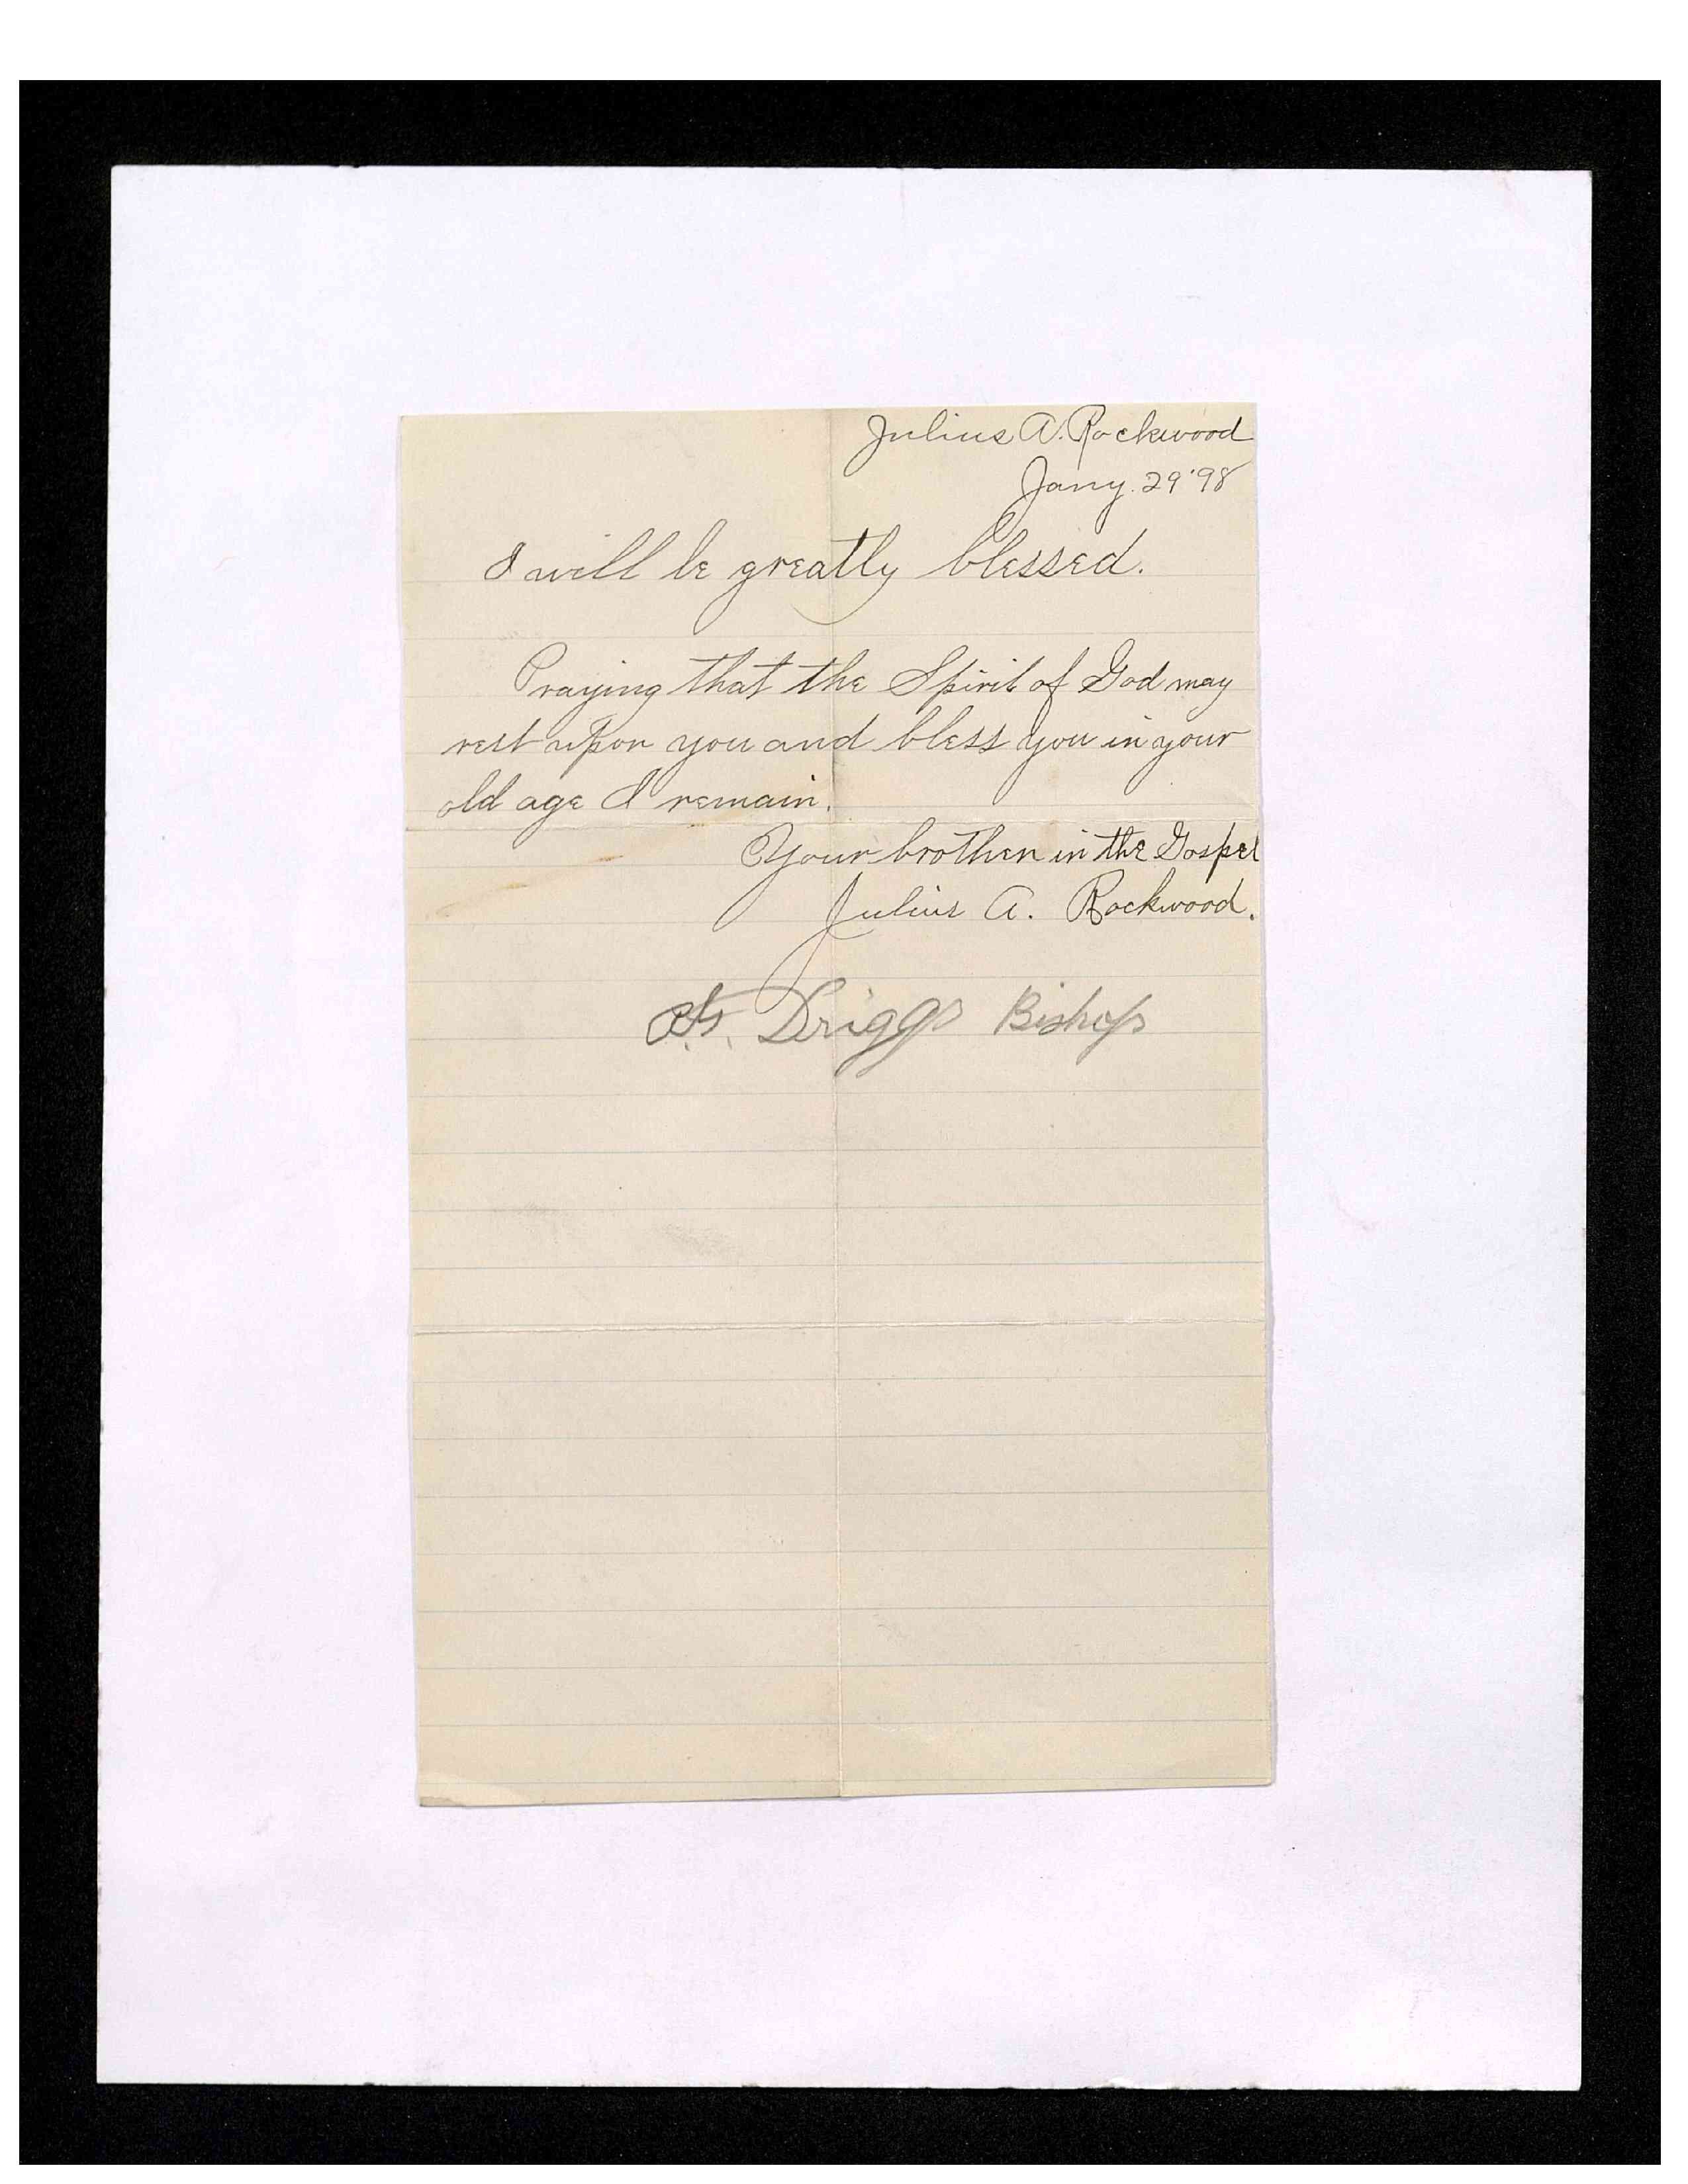 Julius A. Rockwood
Jany. 29 '98
I will be greatly blessed.
Praying that the Spirit of God may
rest upon you and bless you in your
old age I remain.
Your brother in the Gospel
Julius A. Rockwood.
Driggs Bishop